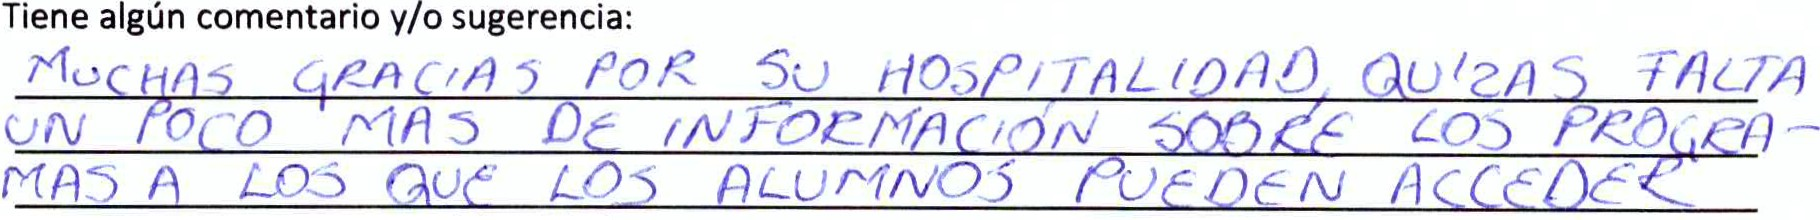 Tiene algún comentario y/o sugerencia:
MUCHAS GRACIAS POR SU HOSPITALIDAD, QUIZAS FALTA
UN POCO MAS DE INFORMACIÓN SOBRE LOS PROGRA-
MAS A LOS QUE LOS ALUMNOS PUEDEN ACCEDER